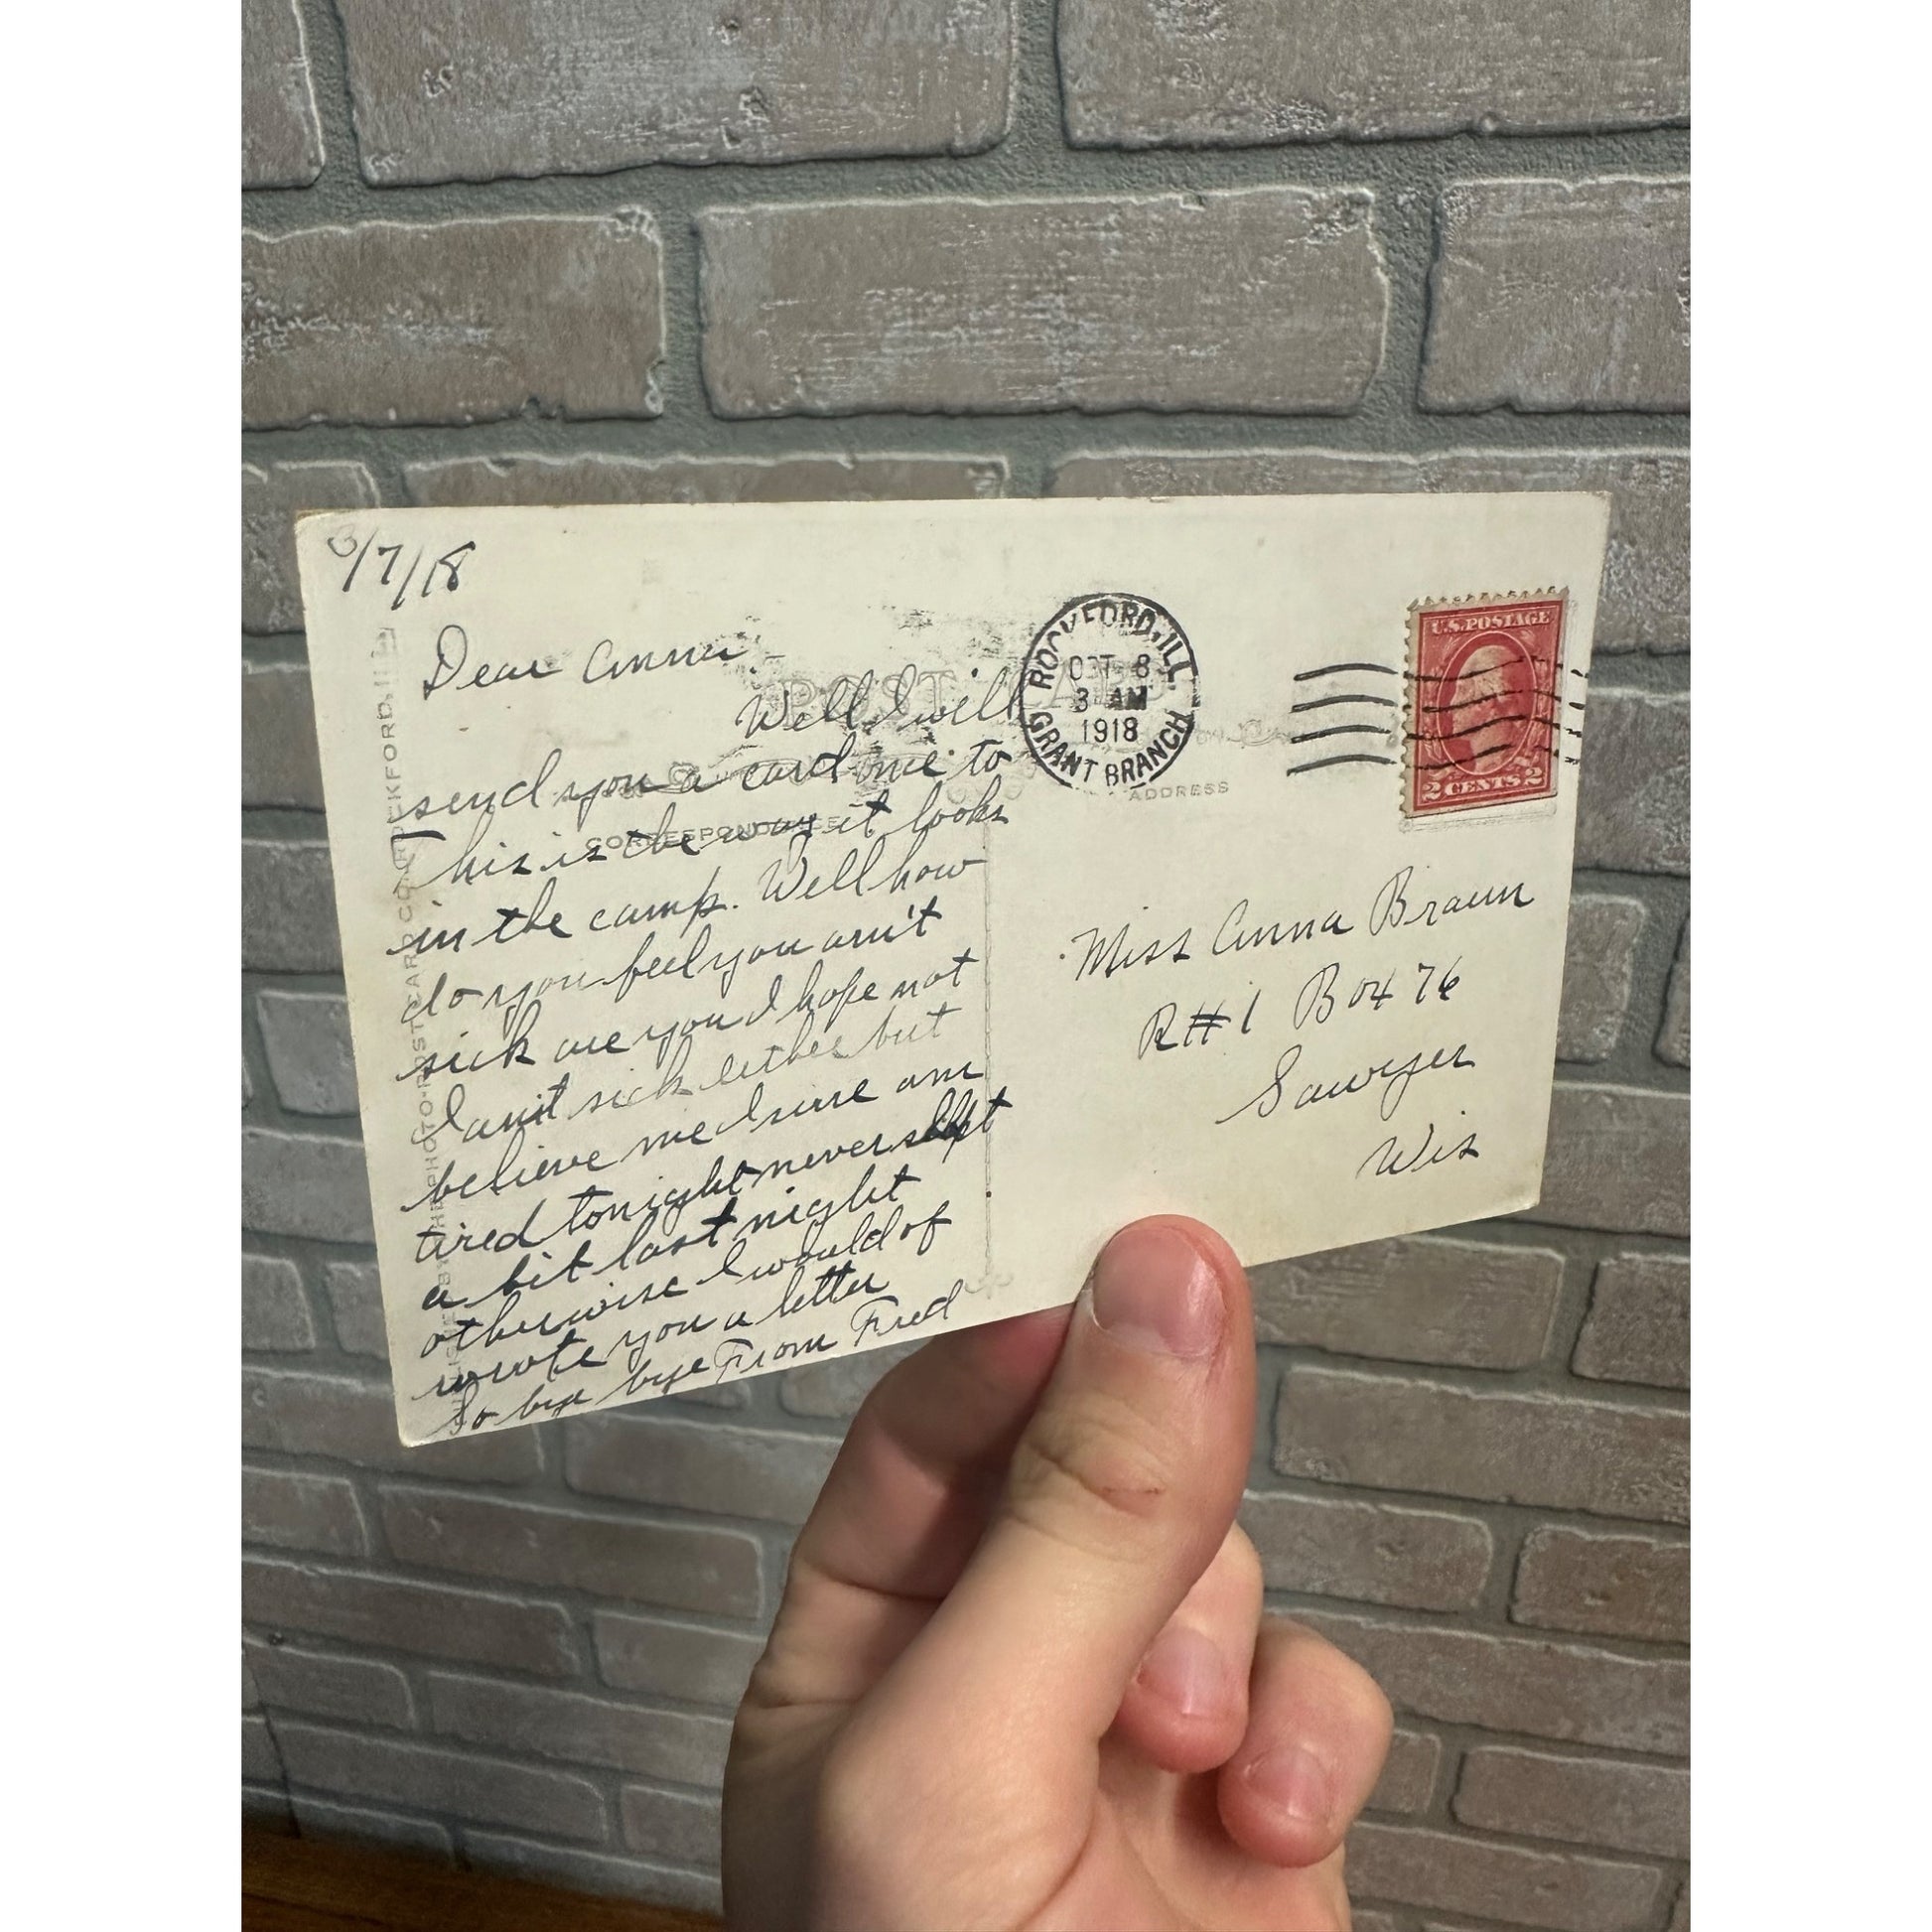 /7/18
Dear Anna -
Well I will
send you a card me to
This is the way it looks
in the camp. Well how
do you feel you ain't
sick are you I hope not
I ain't sick either but
believe me I sure am
tired tonight never slept
a bit last night
otherwise I would of
wrote you a letter
So bye bye From Fred
POST CARD
CORRESPONDENCE
ADDRESS
ROCKFORD, ILL.
OCT 8
3 AM
1918
GRANT BRANCH
U.S. POSTAGE
2 CENTS 2
Miss Anna Braun
R#1 Box 76
Sawyer
Wis
PHOTO-POST CARD CO. ROCKFORD, ILL